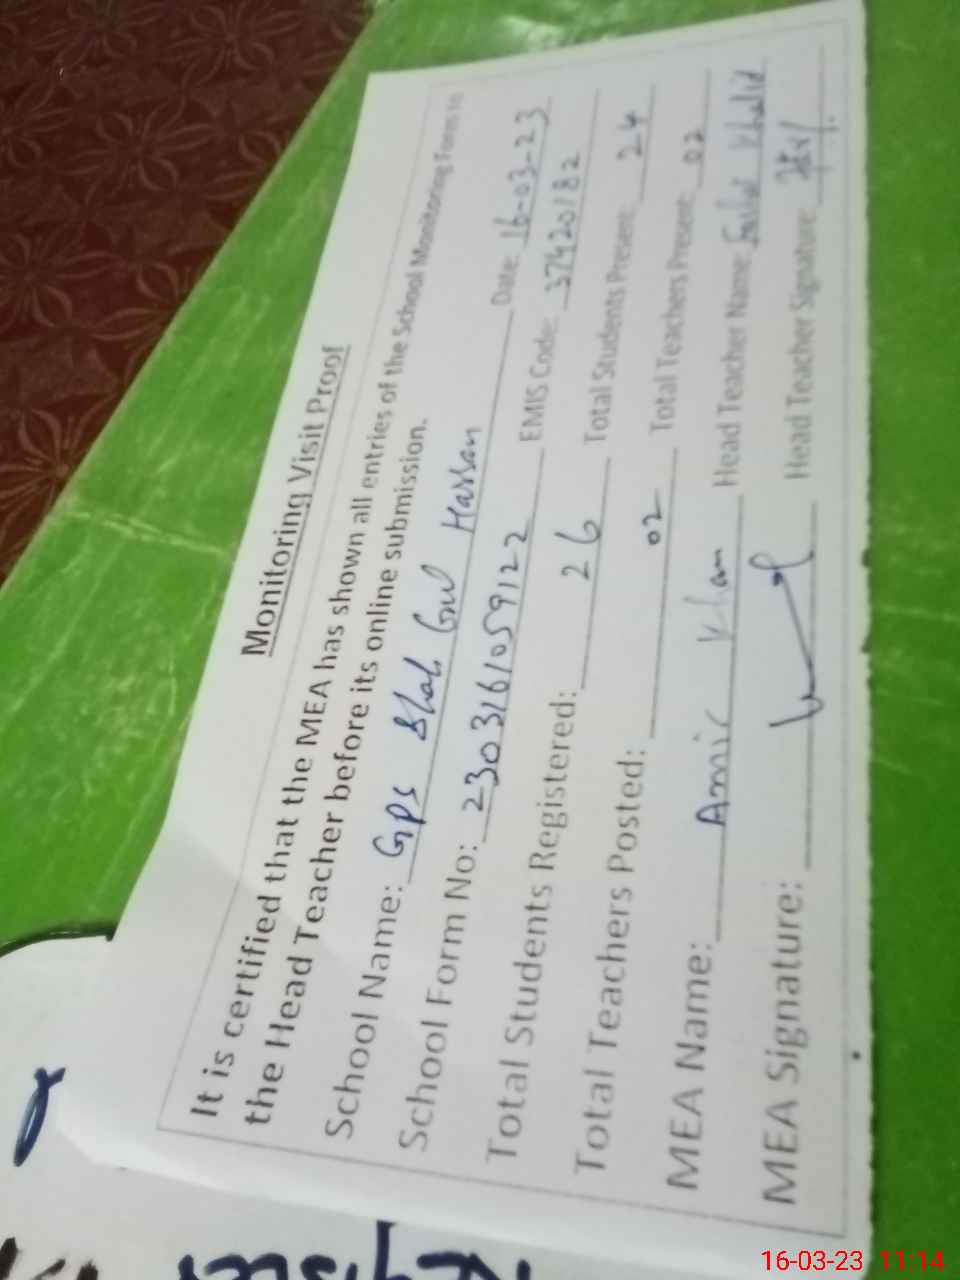 Monitoring Visit Proof
It is certified that the MEA has shown all entries of the School Monitoring Form to
the Head Teacher before its online submission.
School Name: GPS Shah Gul Hassan Date: 16-03-23
School Form No: 2303161059122 EMIS Code: 37420182
Total Students Registered: 26 Total Students Present: 24
Total Teachers Posted: 02 Total Teachers Present: 02
MEA Name: Amir Khan Head Teacher Name: Khalid
MEA Signature: Head Teacher Signature:
16-03-23 11:14